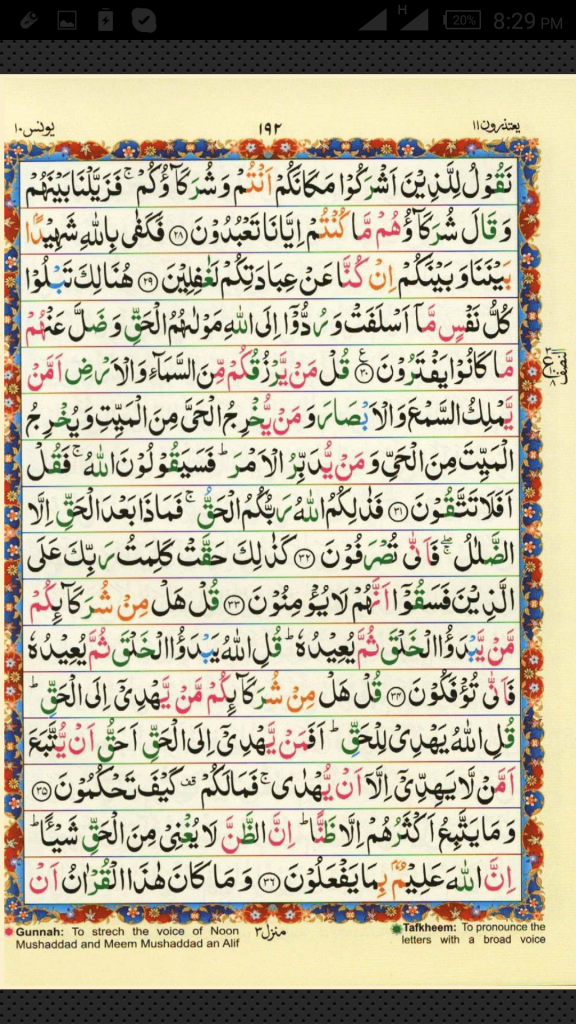 H 20% 8:29 PM
يعتذرون ١١ ١٩٢ يونس ١٠
نَقُوْلُ لِلَّذِيْنَ اَشْرَكُوْا مَكَانَكُمْ اَنْتُمْ وَشُرَكَآؤُكُمْ ۚ فَزَيَّلْنَا بَيْنَهُمْ
وَقَالَ شُرَكَآؤُهُمْ مَّا كُنْتُمْ اِيَّانَا تَعْبُدُوْنَ ﴿۲۸﴾ فَكَفٰى بِاللّٰهِ شَهِيْدًۢا
بَيْنَنَا وَبَيْنَكُمْ اِنْ كُنَّا عَنْ عِبَادَتِكُمْ لَغٰفِلِيْنَ ﴿۲۹﴾ هُنَالِكَ تَبْلُوْا
كُلُّ نَفْسٍ مَّآ اَسْلَفَتْ وَرُدُّوْٓا اِلَى اللّٰهِ مَوْلٰىهُمُ الْحَقِّ وَضَلَّ عَنْهُمْ
مَّا كَانُوْا يَفْتَرُوْنَ ﴿۳۰﴾ ع قُلْ مَنْ يَّرْزُقُكُمْ مِّنَ السَّمَآءِ وَالْاَرْضِ اَمَّنْ
يَّمْلِكُ السَّمْعَ وَالْاَبْصَارَ وَمَنْ يُّخْرِجُ الْحَيَّ مِنَ الْمَيِّتِ وَيُخْرِجُ
الْمَيِّتَ مِنَ الْحَيِّ وَمَنْ يُّدَبِّرُ الْاَمْرَ ؕ فَسَيَقُوْلُوْنَ اللّٰهُ ۚ فَقُلْ
اَفَلَا تَتَّقُوْنَ ﴿۳۱﴾ فَذٰلِكُمُ اللّٰهُ رَبُّكُمُ الْحَقُّ ۚ فَمَاذَا بَعْدَ الْحَقِّ اِلَّا
الضَّلٰلُ ۖۚ فَاَنّٰى تُصْرَفُوْنَ ﴿۳۲﴾ كَذٰلِكَ حَقَّتْ كَلِمَتُ رَبِّكَ عَلَى
الَّذِيْنَ فَسَقُوْٓا اَنَّهُمْ لَا يُؤْمِنُوْنَ ﴿۳۳﴾ قُلْ هَلْ مِنْ شُرَكَآئِكُمْ
مَّنْ يَّبْدَؤُا الْخَلْقَ ثُمَّ يُعِيْدُهٗ ؕ قُلِ اللّٰهُ يَبْدَؤُا الْخَلْقَ ثُمَّ يُعِيْدُهٗ
فَاَنّٰى تُؤْفَكُوْنَ ﴿۳۴﴾ قُلْ هَلْ مِنْ شُرَكَآئِكُمْ مَّنْ يَّهْدِيْٓ اِلَى الْحَقِّ ؕ
قُلِ اللّٰهُ يَهْدِيْ لِلْحَقِّ ؕ اَفَمَنْ يَّهْدِيْٓ اِلَى الْحَقِّ اَحَقُّ اَنْ يُّتَّبَعَ
اَمَّنْ لَّا يَهِدِّيْٓ اِلَّآ اَنْ يُّهْدٰى ۚ فَمَا لَكُمْ قف كَيْفَ تَحْكُمُوْنَ ﴿۳۵﴾
وَمَا يَتَّبِعُ اَكْثَرُهُمْ اِلَّا ظَنًّا ؕ اِنَّ الظَّنَّ لَا يُغْنِيْ مِنَ الْحَقِّ شَيْـًٔا ؕ
اِنَّ اللّٰهَ عَلِيْمٌۢ بِمَا يَفْعَلُوْنَ ﴿۳۶﴾ وَمَا كَانَ هٰذَا الْقُرْاٰنُ اَنْ
النصف
منزل ٣
Gunnah: To strech the voice of Noon
Mushaddad and Meem Mushaddad an Alif
Tafkheem: To pronounce the
letters with a broad voice